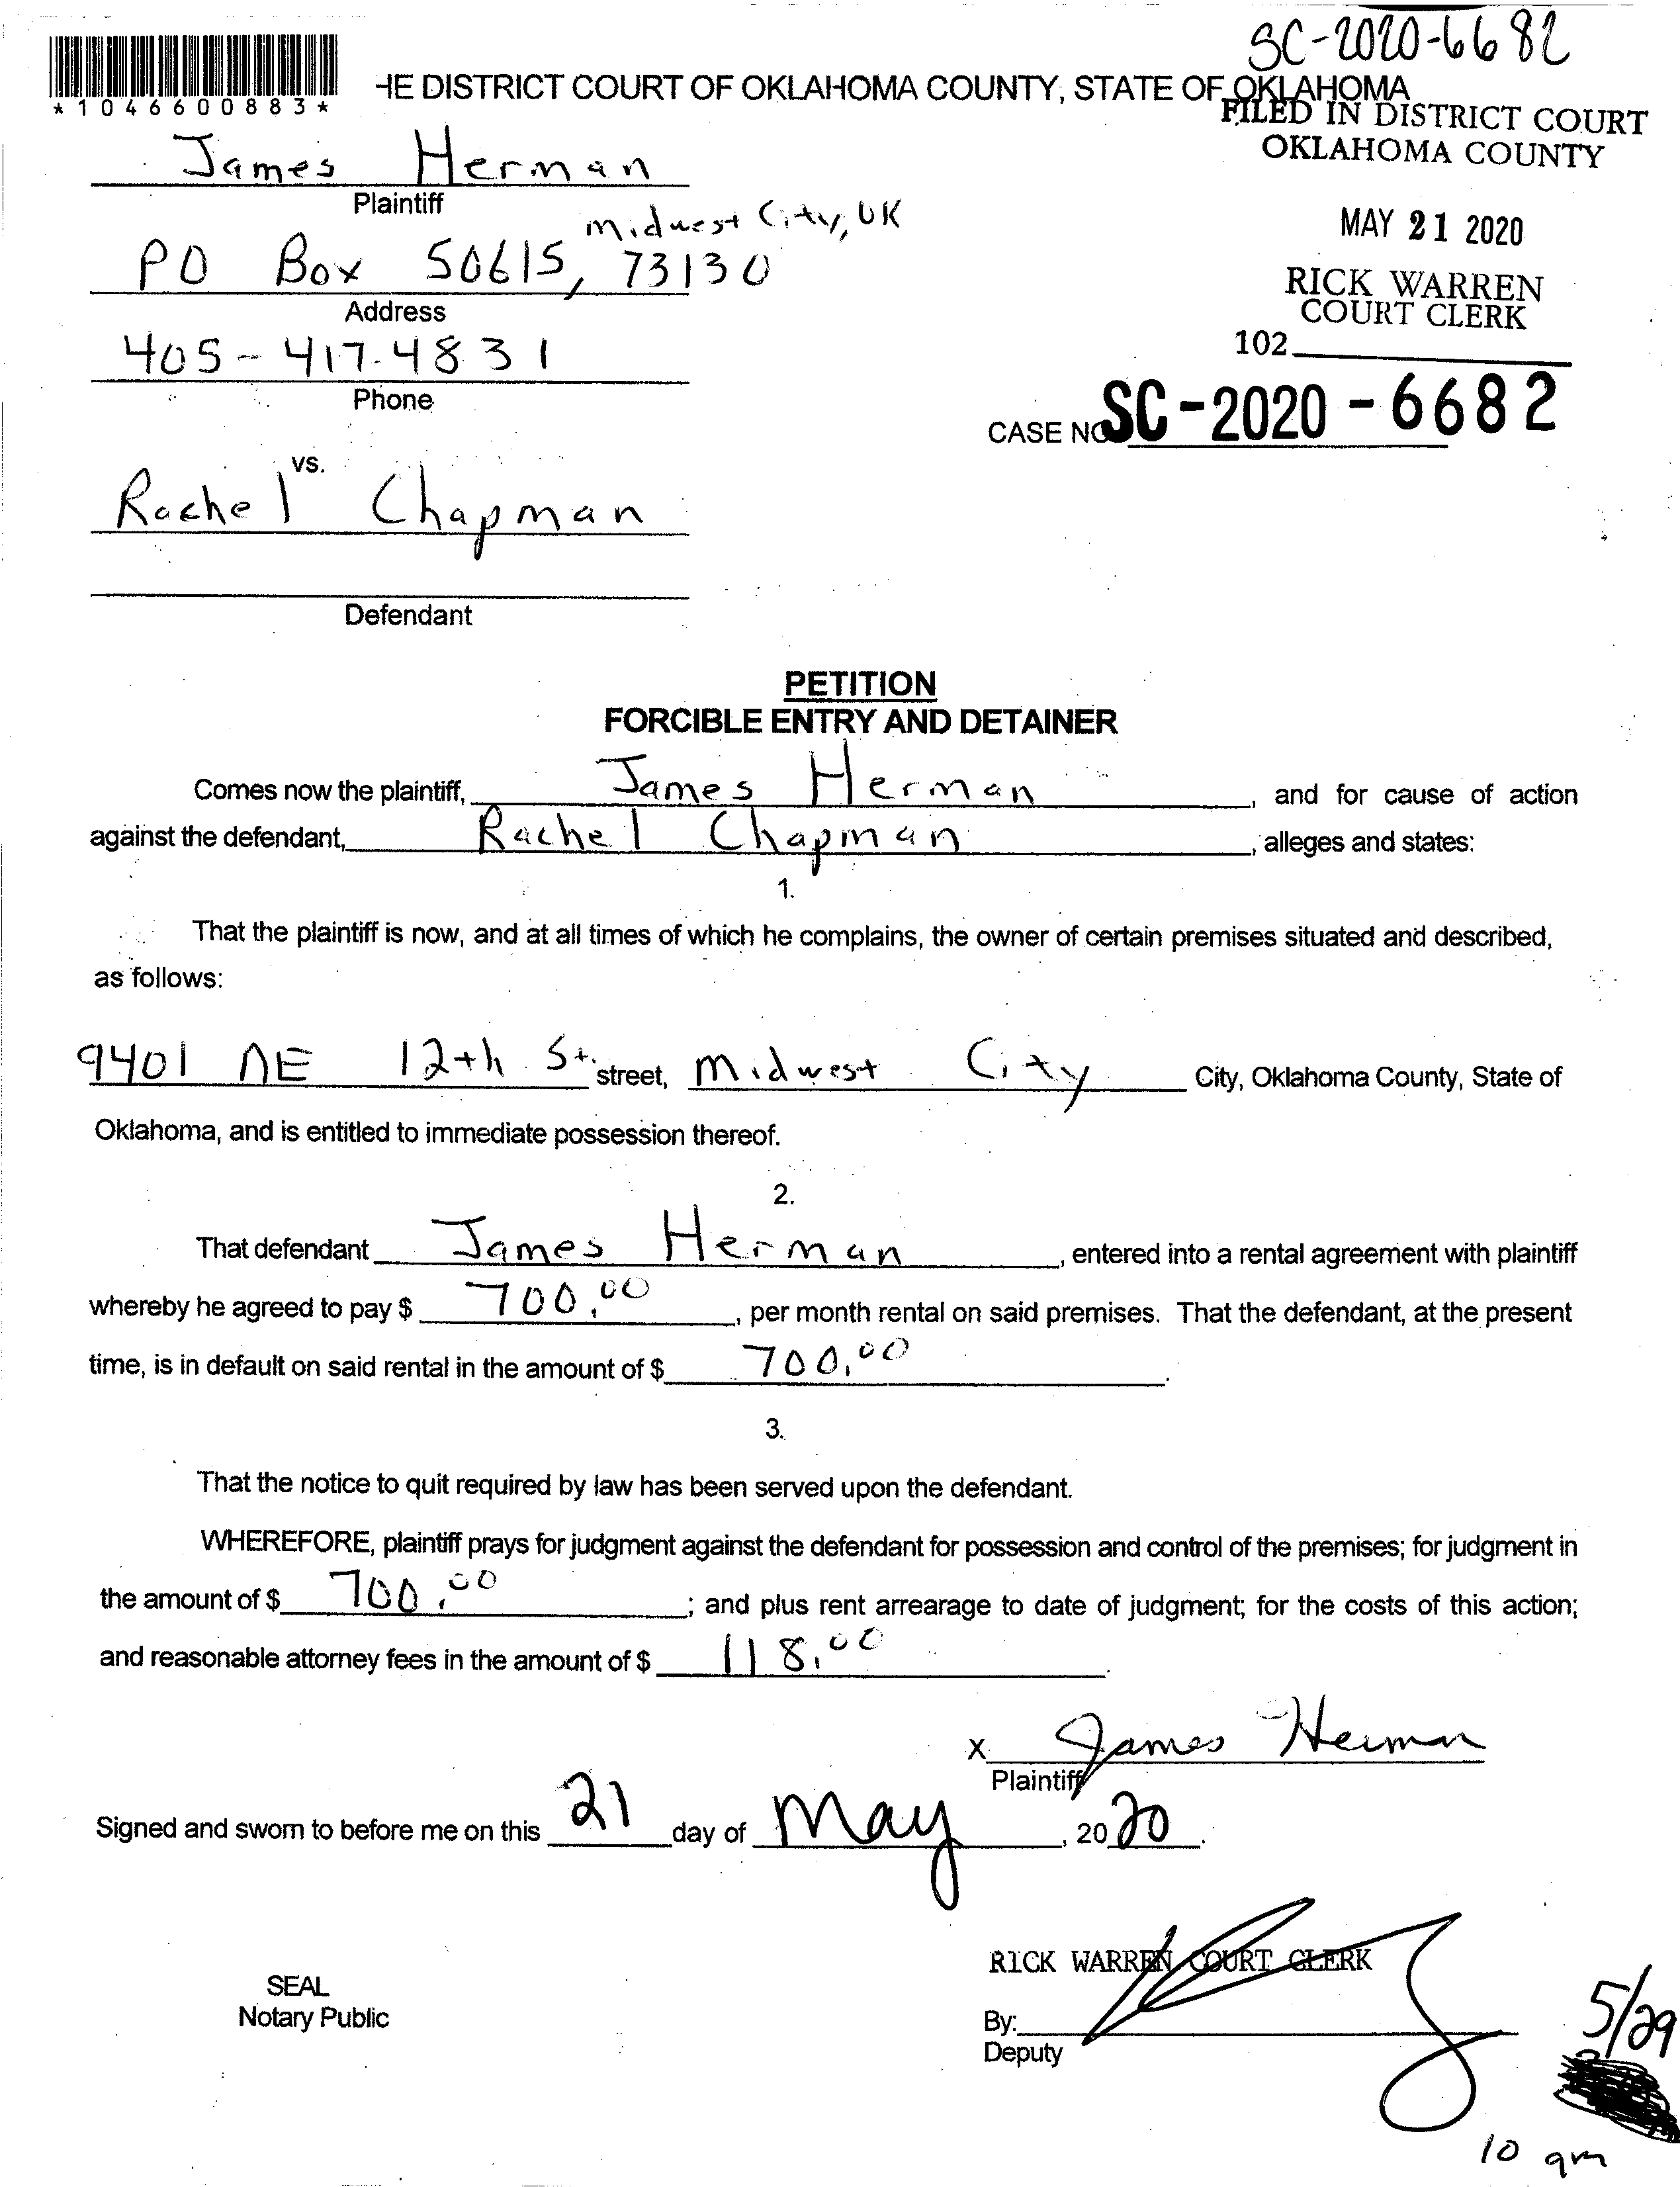 SC-2020-6682
*1046600883*
HE DISTRICT COURT OF OKLAHOMA COUNTY, STATE OF OKLAHOMA
FILED IN DISTRICT COURT
OKLAHOMA COUNTY
James Herman
Plaintiff
MAY 21 2020
Midwest City, OK
PO Box 50615, 73130
Address
RICK WARREN
COURT CLERK
102
405-417-4831
Phone
CASE NO SC-2020-6682
vs.
Rachel Chapman
Defendant
PETITION
FORCIBLE ENTRY AND DETAINER
Comes now the plaintiff, James Herman, and for cause of action
against the defendant, Rachel Chapman, alleges and states:
1.
That the plaintiff is now, and at all times of which he complains, the owner of certain premises situated and described,
as follows:
9401 NE 12th St. street, Midwest City City, Oklahoma County, State of
Oklahoma, and is entitled to immediate possession thereof.
2.
That defendant James Herman, entered into a rental agreement with plaintiff
whereby he agreed to pay $ 700.00, per month rental on said premises. That the defendant, at the present
time, is in default on said rental in the amount of $ 700.00.
3.
That the notice to quit required by law has been served upon the defendant.
WHEREFORE, plaintiff prays for judgment against the defendant for possession and control of the premises; for judgment in
the amount of $ 700.00; and plus rent arrearage to date of judgment; for the costs of this action;
and reasonable attorney fees in the amount of $ 118.00.
X James Herman
Plaintiff
Signed and sworn to before me on this 21 day of May, 2020.
RICK WARREN COURT CLERK
SEAL
Notary Public
By:
Deputy
5/29
10 am